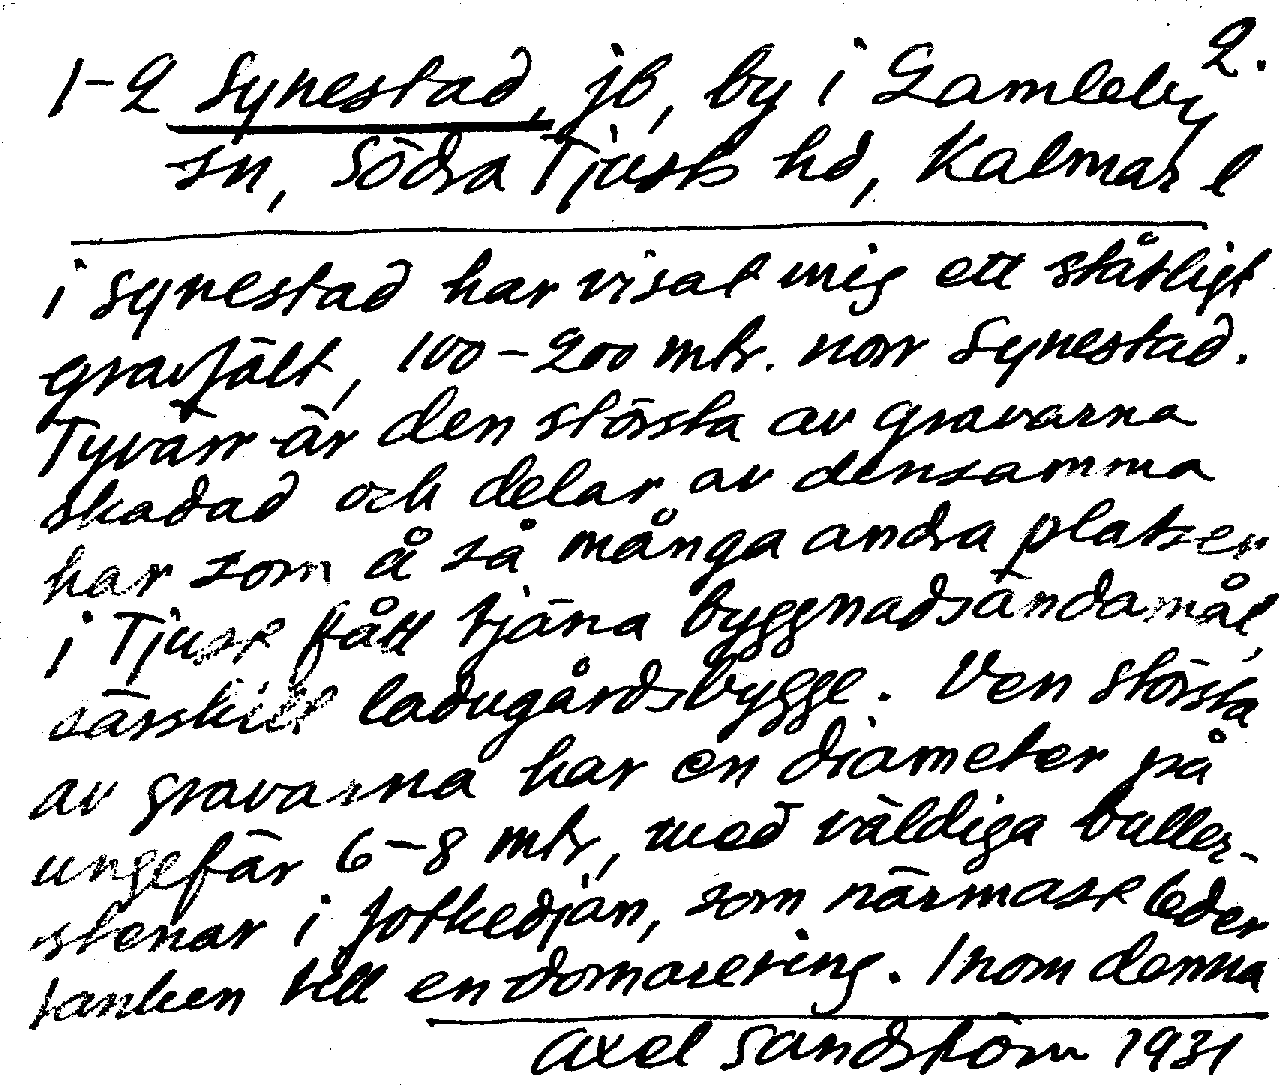 2.
1-2 Synestad, jb, by i Gamleby
sn, Södra Tjusts hd, Kalmar l
i Synestad har visat mig ett ståtligt
gravfält, 100-200 mtr. norr Synestad.
Tyvärr är den största av gravarna
skadad och delar av densamma
har som å så många andra platser
i Tjust fått tjäna byggnadsändamål,
särskilt ladugårdsbygge. Den största
av gravarna har en diameter på
ungefär 6-8 mtr, med väldiga buller-
stenar i fotkedjan, som närmast leder
tanken till en domarering. Inom denna
Axel Sandström 1931